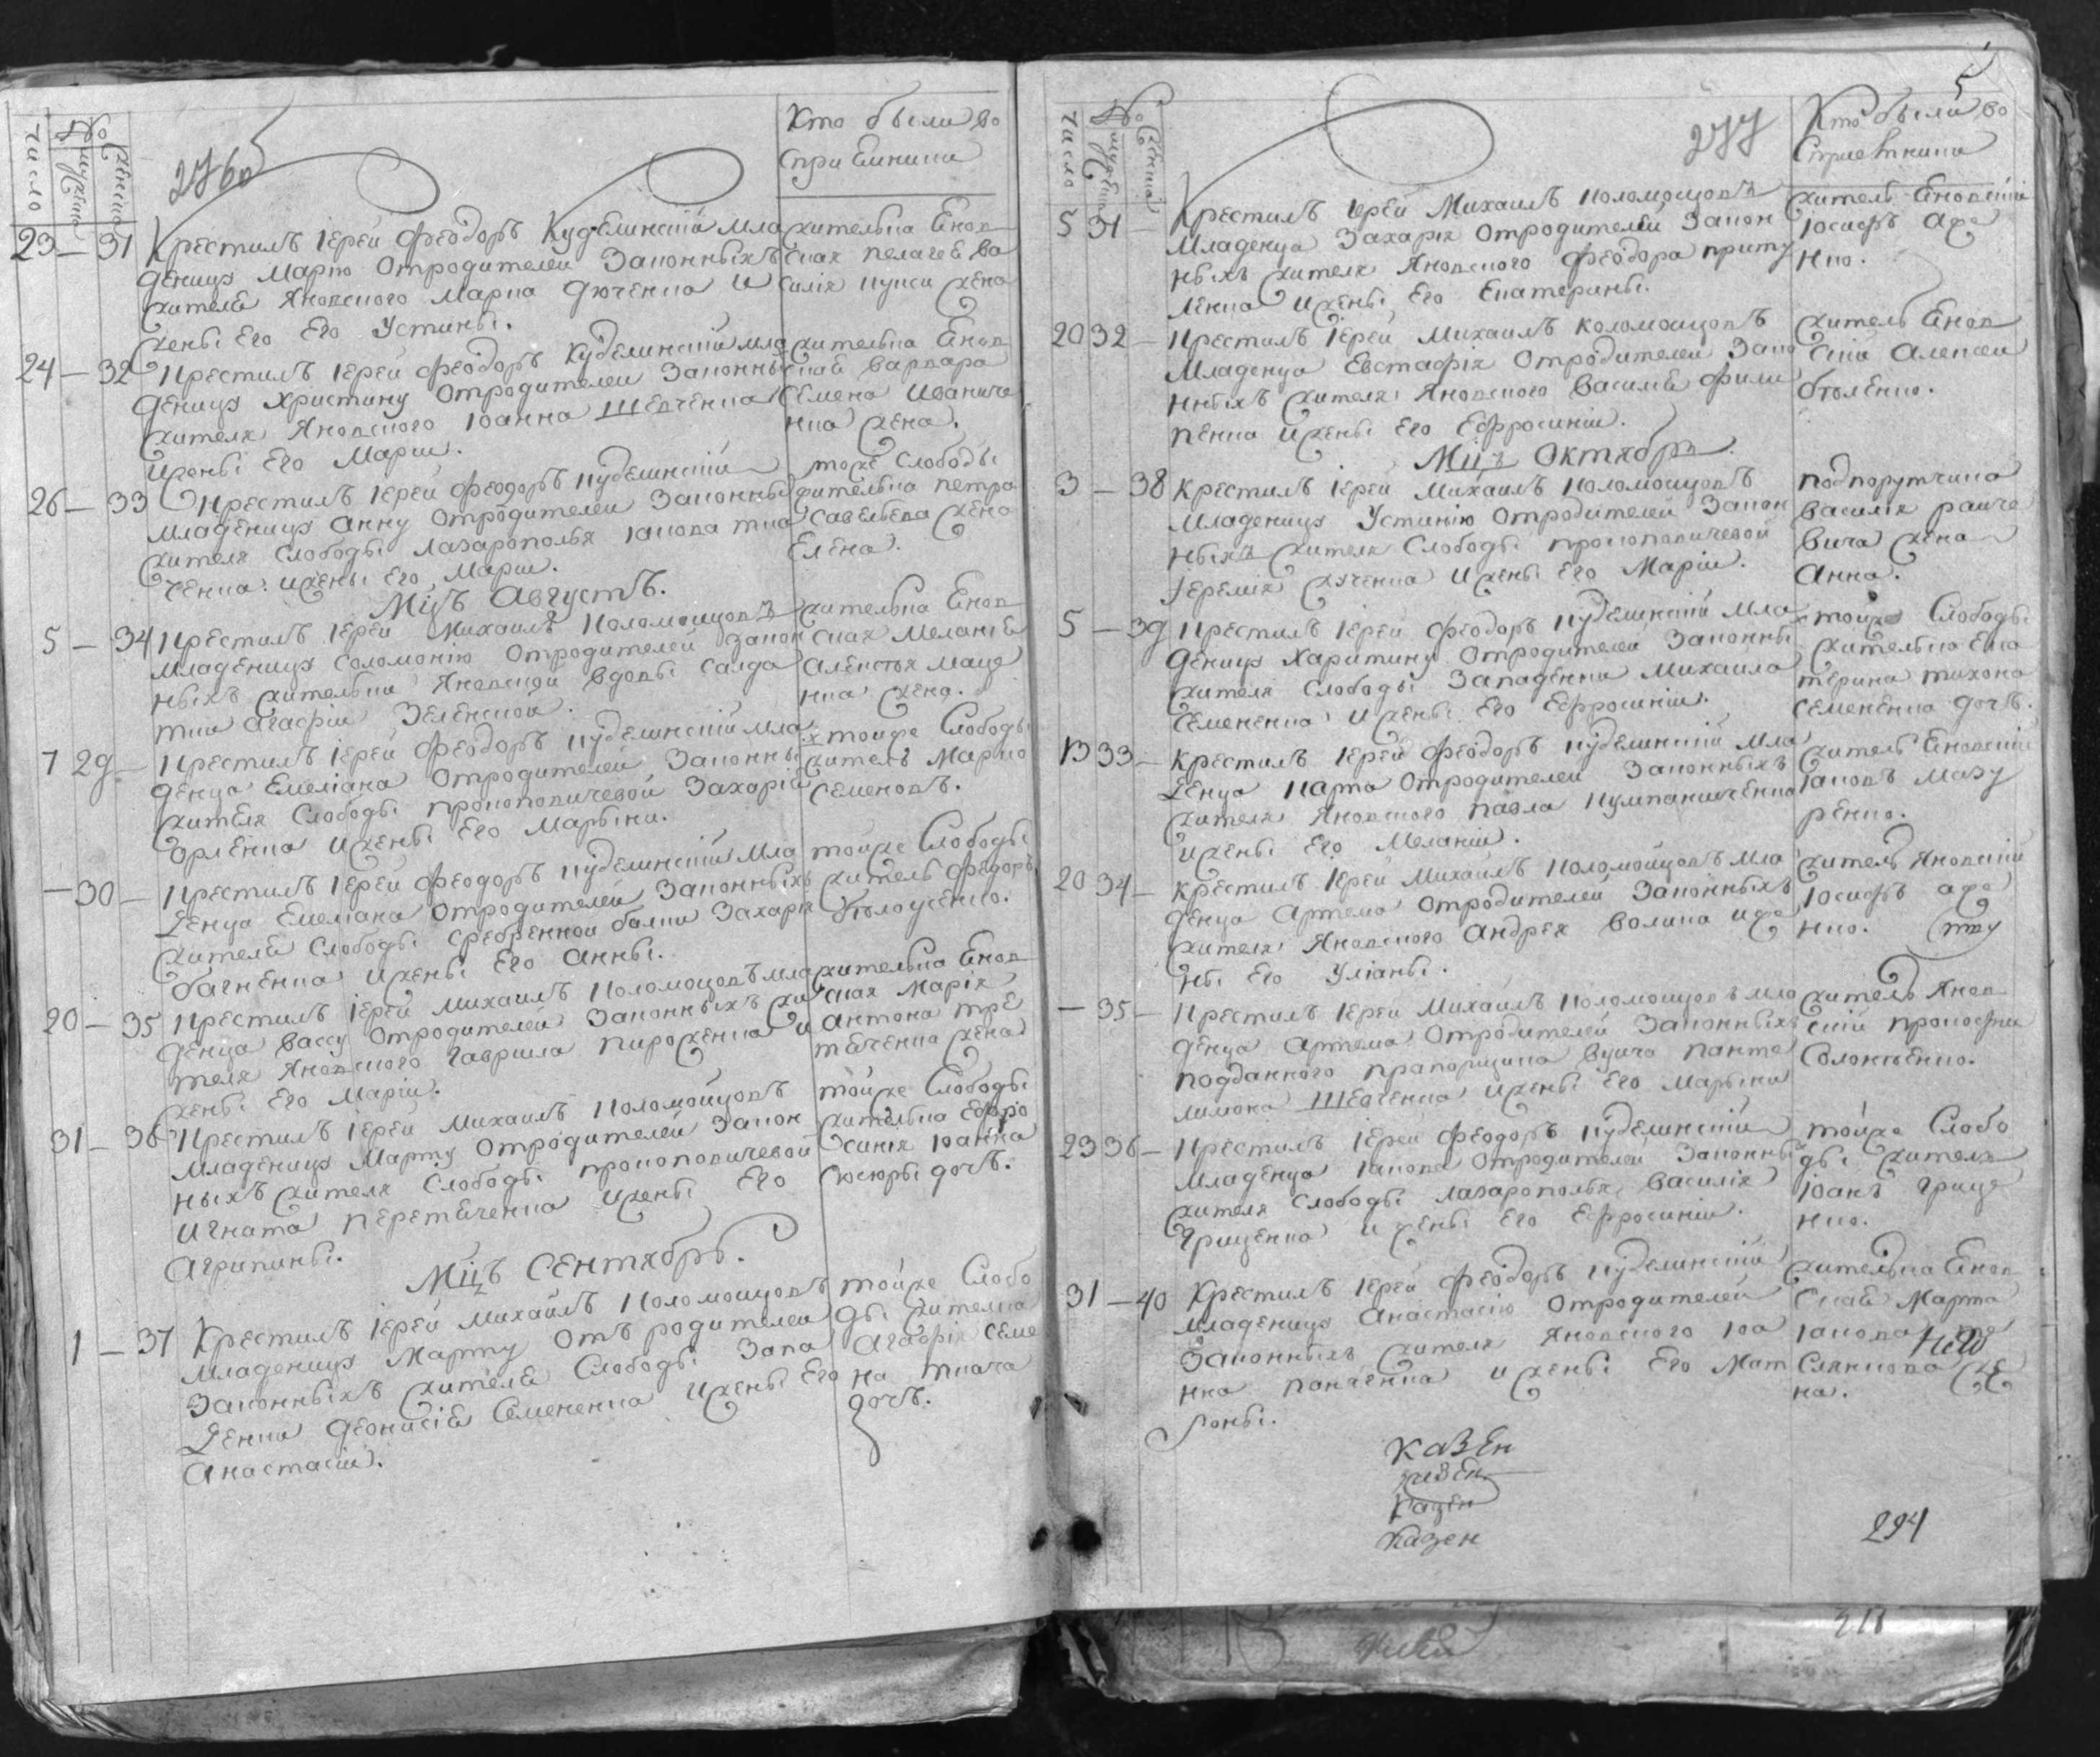 Число
№
мужеска
женска
276об
Кто были во
сприемники
23 — 31 Крестилъ Iерей Феодоръ Куделинскiй мла
деницу Марию Отродителей Законныхъ
жителя Яновского Марка Дюченка и
жены Его Его Устины.
жителька Янов
ская Пелагея Ва
силiя жена
24 — 32 Крестилъ Iерей Феодоръ Куделинскiй мла
деницу Христину Отродителей Законны
жителя Яновского Iоанна Шевченка
ижены Его Марiи.
жителька Янов
ская Варвара
Семена Иваниче
нка жена.
26 — 33 Крестилъ Iерей Феодоръ Куделинскiй
младеницу Анну Отродителей Законны
жителя Слободы Лазарополья Iакова Тка
ченка ижены Его Марiи.
тоже Слободы
жителька Петра
Савельева жена
Елена.
Мцъ Августъ.
5 — 34 Крестилъ Iерей Михаилъ Коломойцовъ
младеницу Соломонiю Отродителей Закон
ныхъ жительки Яновской вдовы Салда
тки Агафiи Зеленской.
жителька Янов
ская Меланiя
Алексея Маце
нка жена.
7 29 — Крестилъ Iерей Феодоръ Куделинскiй мла
денца Емелiана Отродителей Законны
жителя Слободы Прокоповичевой Захарiя
Орленка ижены Его Марьяни.
тойже Слободы
житель Марко
Семеновъ.
— 30 — Крестилъ Iерей Феодоръ Куделинскiй мла
денца Емелiана Отродителей Законныхъ
жителя Слободы Сребренной балки Захарiя
багненка ижены Его Анны.
тойже Слободы
житель Федоръ
Бѣлоусенко.
20 — 35 Крестилъ Iерей Михаилъ Коломойцовъ мла
денца Вассу Отродителей Законныхъ жи
теля Яновского Гаврила Пироженка и
жены Его Марiи.
жителька Янов
ская Марiя
Антона Тре
тяченка жена
31 — 36 Крестилъ Iерей Михаилъ Коломойцовъ
младеницу Марту Отродителей Закон
ныхъ жителя Слободы Прокоповичевой
Игната Перетяченка ижены Его
Агрипины.
тойже Слободы
жителька Ефро
синiя Iоанна
Сюсюры дочъ.
Мцъ Сентябръ.
1 — 37 Крестилъ Iерей Михаилъ Коломойцовъ
младеницу Марту Отъ родителей
Законныхъ жителя Слободы Запа
денки Деонисiя Семененка ижены Его
Анастасiи.
тойже Слобо
ды жителка
Агафiя Семе
на Ткача
дочъ.
5
277
Число
№
мужеска
женска
Кто были во
сприемники
5 31 — Крестилъ Iерей Михаилъ Коломойцовъ
Младенца Захарiя Отродителей Закон
ныхъ жителя Яновского Феодора Приту
ленка ижены Его Екатерины.
житель Яновскiй
Iосифъ Аде
нко.
20 32 — Крестилъ Iерей Михаилъ Коломойцовъ
Младенца Евстафiя Отродителей Зако
нныхъ жителя Яновского Василiя Фили
пенка ижены Его Ефросинiи.
житель Янов
скiй Алексей
Мцъ Октябръ
3 — 38 Крестилъ Iерей Михаилъ Коломойцовъ
Младеницу Устинiю Отродителей Закон
ныхъ жителя Слободы Прокоповичевой
Iеремiя жученка ижены Его Марiи.
Подпорутчика
Василiя Раиче
вича жена
Анна.
5 — 39 Крестилъ Iерей Феодоръ Куделинскiй мла
деницу Харитину Отродителей Законны
жителя Слободы Западенки Михаила
Семененка ижены Его Ефросинiи.
тойже Слободы
жителька Ека
терина Тихона
Семененка дочъ.
13 33 — Крестилъ Iерей Феодоръ Куделинскiй мла
денца Карпа Отродителей Законныхъ
жителя Яновского Павла Кумпаниченка
ижены Его Меланiи.
житель Яновскiй
Iаковъ Мазу
ренко.
20 34 — Крестилъ Iерей Михаилъ Коломойцовъ мла
денца Артема Отродителей Законныхъ
жителя Яновского Андрея Волика иже
ны Его Улiаны.
житель Яновскiй
Iосифъ Аде
нко.
— 35 — Крестилъ Iерей Михаилъ Коломойцовъ мла
денца Артема Отродителей Законныхъ
подданного прапорщика Вуича Панте
лимона Шевченка ижены Его Марьяни
житель Янов
скiй Прокофiй
Солонъенко.
23 36 — Крестилъ Iерей Феодоръ Куделинскiй
Младенца Iакова Отродителей Законны
жителя Слободы Лазарополья Василiя
Грищенка и жены Его Ефросинiи.
тойже Слобо
ды жителя
Iоанъ Грище
нко.
31 — 40 Крестилъ Iерей Феодоръ Куделинскiй
младеницу Анастасiю Отродителей
Законныхъ жителя Яновского Iоа
нна Панченка ижены Его Мат
роны.
жителька Янов
ская Марта
Iакова
жена.
Казен
Казен
Казен
Казен
294